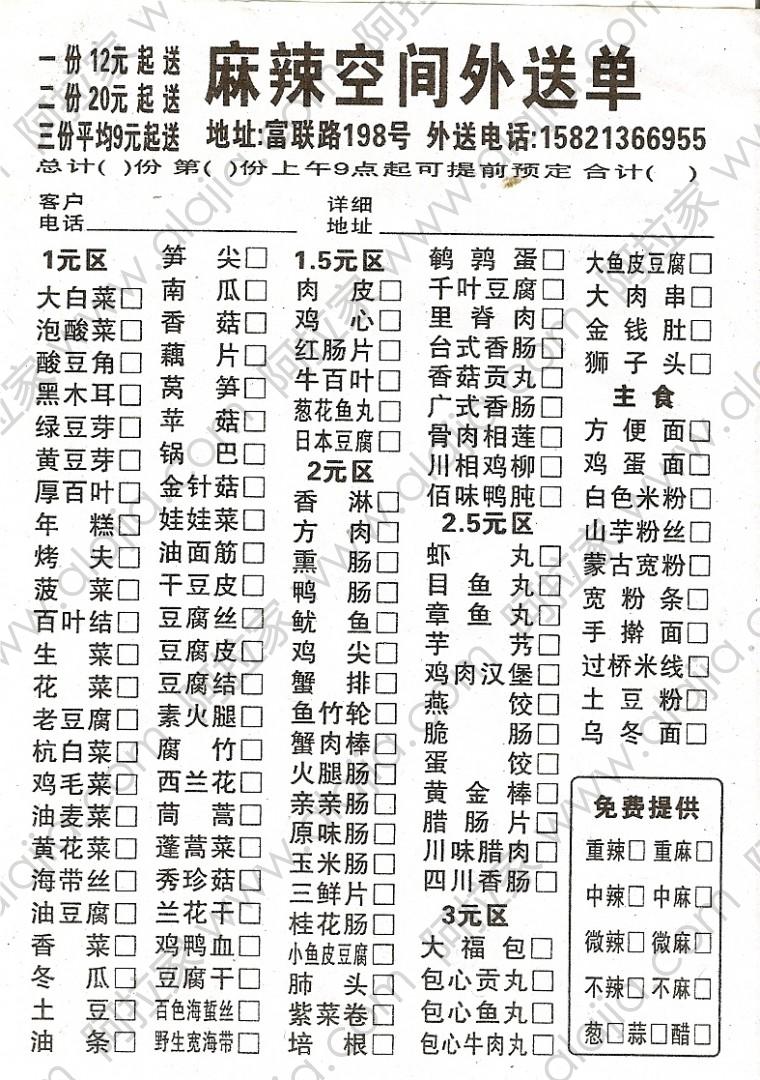 一份12元起送
二份20元起送
三份平均9元起送
麻辣空间外送单
地址:富联路198号 外送电话:15821366955
总计( )份 第( )份上午9点起可提前预定 合计( )
客户
电话
详细
地址
1元区
大白菜□
泡酸菜□
酸豆角□
黑木耳□
绿豆芽□
黄豆芽□
厚百叶□
年糕□
烤夫□
菠菜□
百叶结□
生菜□
花菜□
老豆腐□
杭白菜□
鸡毛菜□
油麦菜□
黄花菜□
海带丝□
油豆腐□
香菜□
冬瓜□
土豆□
油条□
笋尖□
南瓜□
香菇□
藕片□
莴笋□
苹菇□
锅巴□
金针菇□
娃娃菜□
油面筋□
干豆皮□
豆腐丝□
豆腐皮□
豆腐结□
素火腿□
腐竹□
西兰花□
茼蒿□
蓬蒿菜□
秀珍菇□
兰花干□
鸡鸭血□
豆腐干□
百色海蜇丝□
野生宽海带□
1.5元区
肉皮□
鸡心□
红肠片□
牛百叶□
葱花鱼丸□
日本豆腐□
2元区
香淋□
方肉□
熏肠□
鸭肠□
鱿鱼□
鸡尖□
蟹排□
鱼竹轮□
蟹肉棒□
火腿肠□
亲亲肠□
原味肠□
玉米肠□
三鲜片□
桂花肠□
小鱼皮豆腐□
肺头□
紫菜卷□
培根□
鹌鹑蛋□
千叶豆腐□
里脊肉□
台式香肠□
香菇贡丸□
广式香肠□
骨肉相莲□
川相鸡柳□
佰味鸭肫□
2.5元区
虾丸□
目鱼丸□
章鱼丸□
芋艿□
鸡肉汉堡□
燕饺□
脆肠□
蛋饺□
黄金棒□
腊肠片□
川味腊肉□
四川香肠□
3元区
大福包□
包心贡丸□
包心鱼丸□
包心牛肉丸□
大鱼皮豆腐□
大肉串□
金钱肚□
狮子头□
主食
方便面□
鸡蛋面□
白色米粉□
山芋粉丝□
蒙古宽粉□
宽粉条□
手擀面□
过桥米线□
土豆粉□
乌冬面□
免费提供
重辣□ 重麻□
中辣□ 中麻□
微辣□ 微麻□
不辣□ 不麻□
葱□蒜□醋□
阿拉家 www.alajia.com